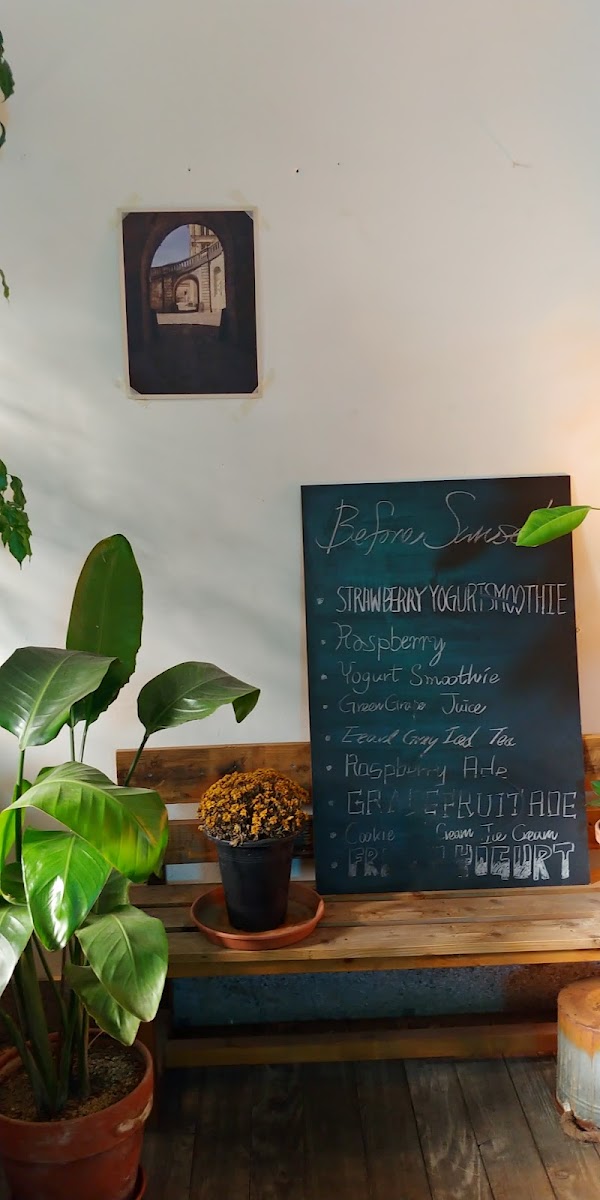 Before Sunset
STRAWBERRY YOGURT SMOOTHIE
Raspberry
Yogurt Smoothie
Green Grape Juice
Earl Gray Iced Tea
Raspberry Ade
GRAPEFRUIT ADE
Cookie Cream Ice Cream
YOGURT